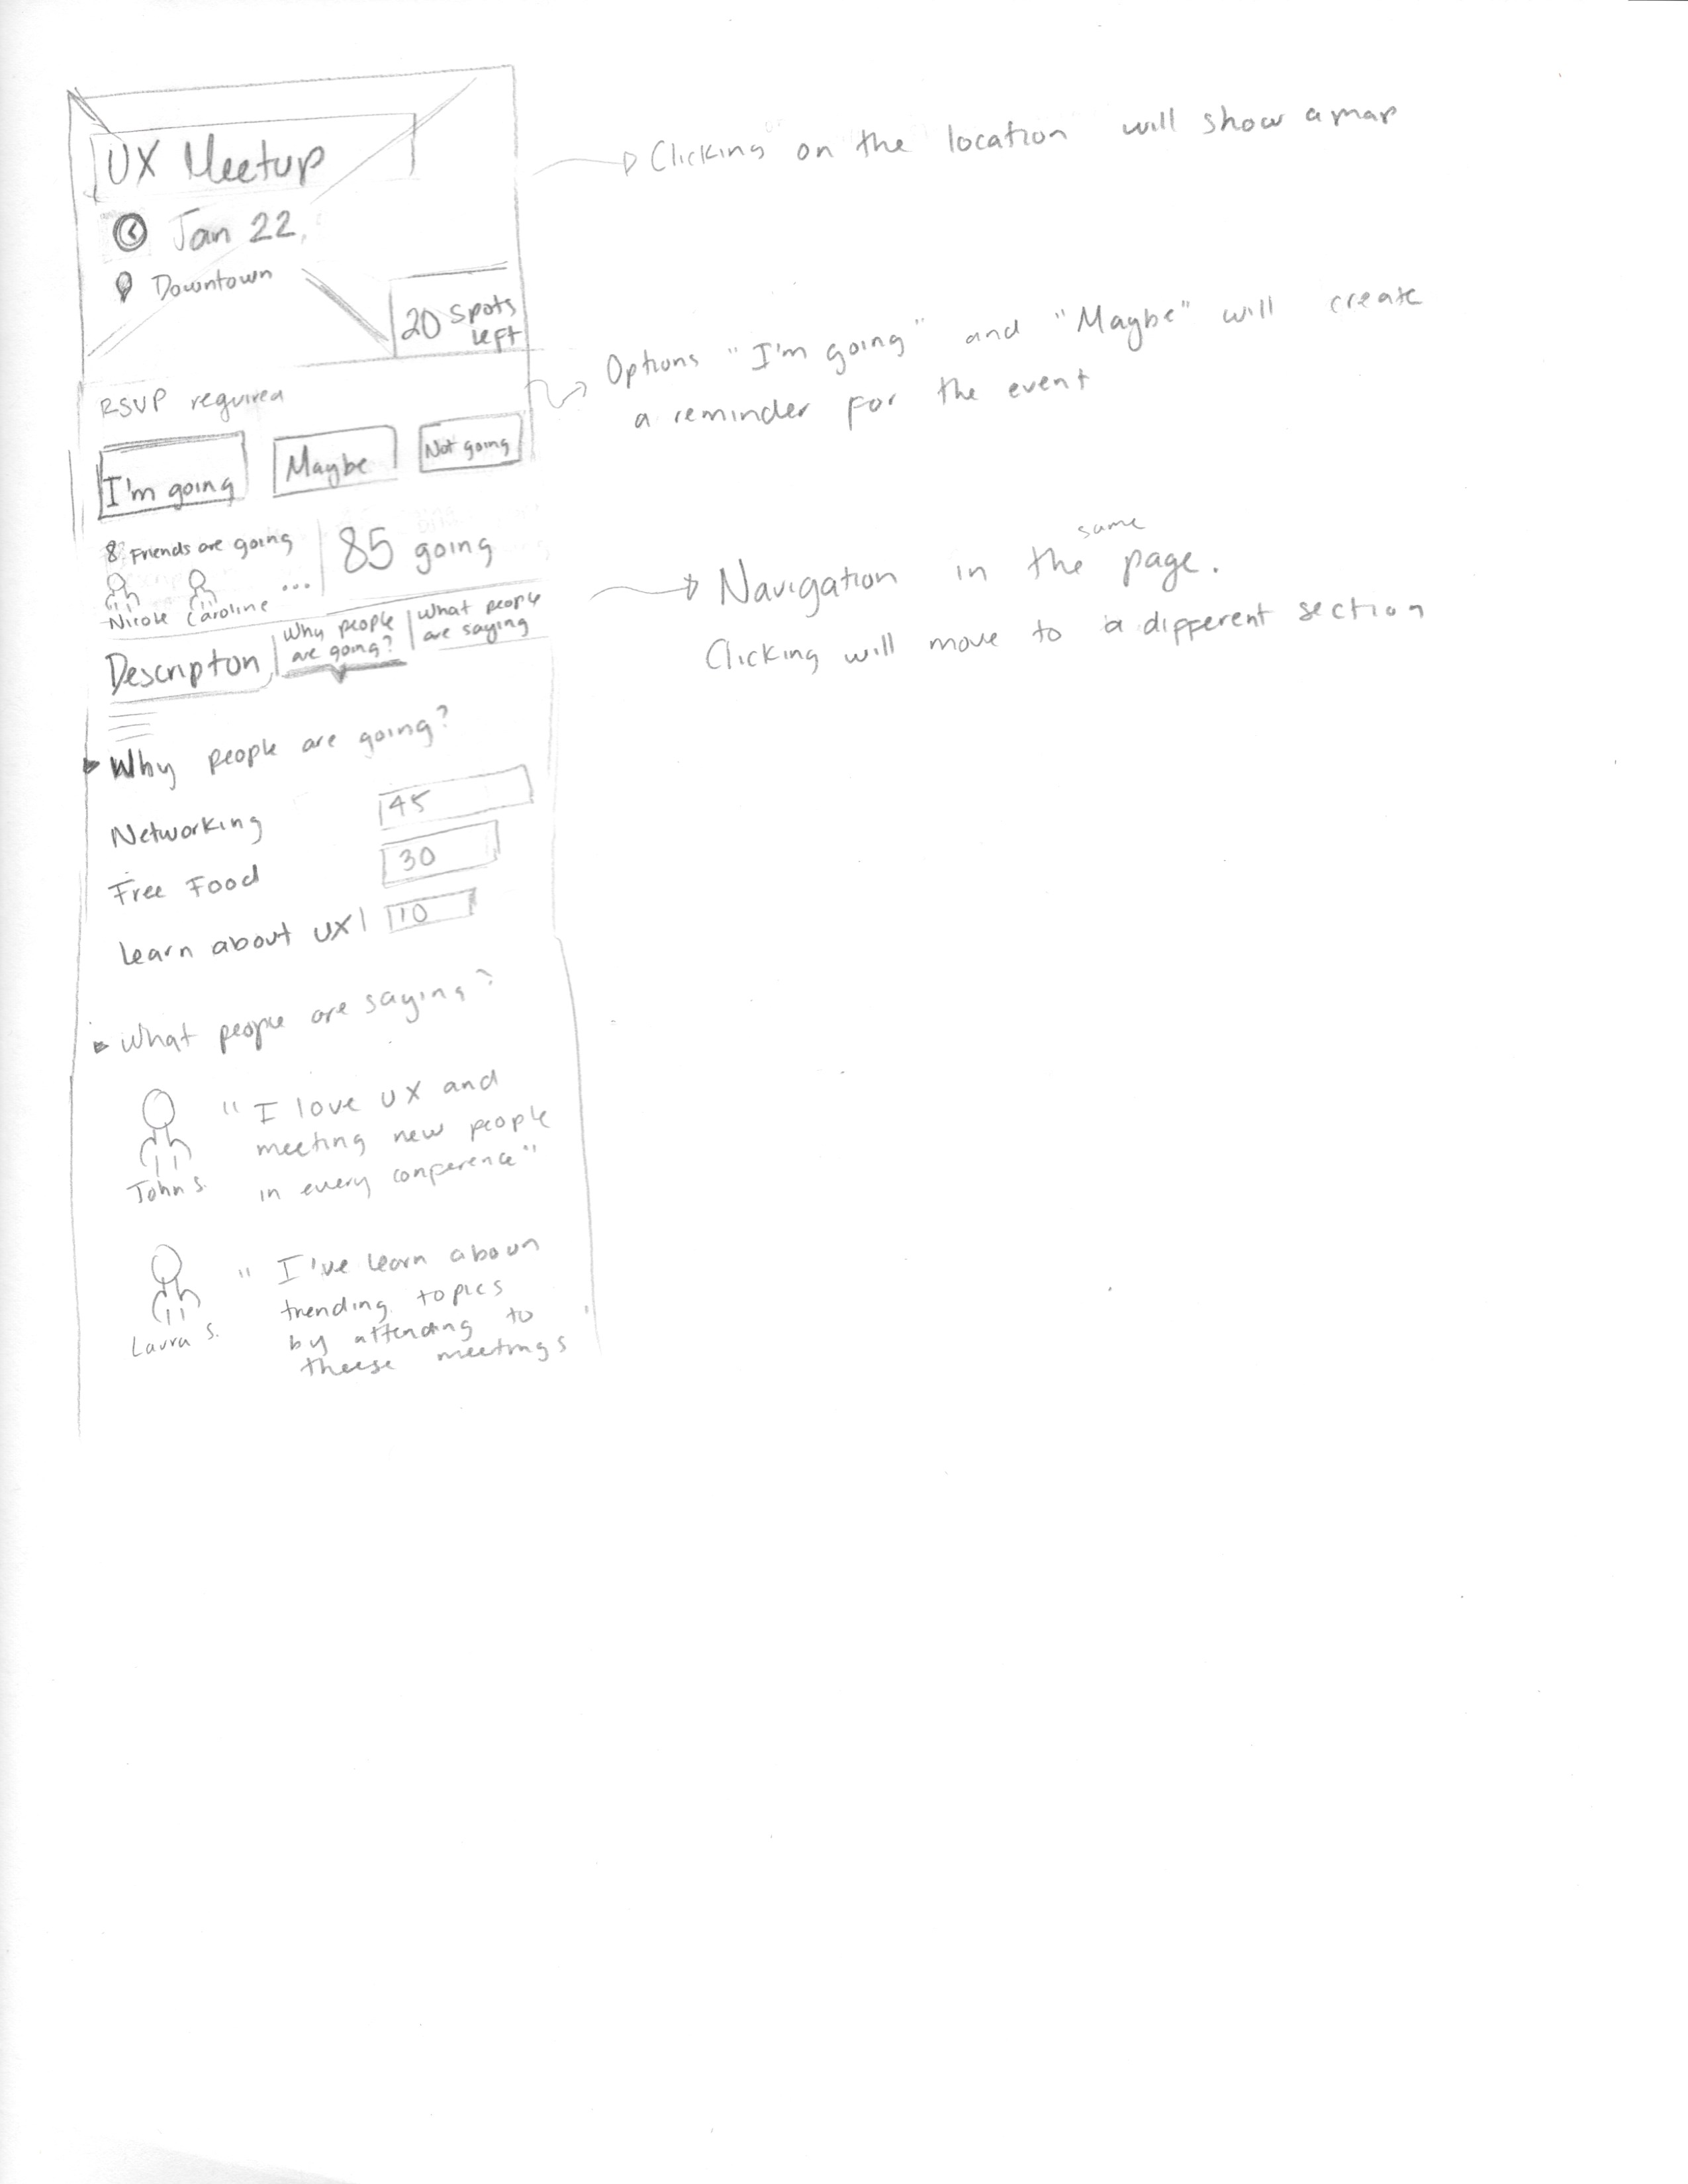 UX Meetup
Jan 22,
Downtown
20 spots
left
RSVP required
I'm going
Maybe
Not going
8 Friends are going
85 going
Nicole Caroline ...
Description
Why people
are going?
What people
are saying
Why people are going?
Networking 45
Free Food 30
Learn about UX 10
What people are saying?
"I love UX and
meeting new people
in every conference"
John S.
"I've learn aboun
trending topics
by attending to
theese meetings
Laura S.
Clicking on the location will show a map
Options "I'm going" and "Maybe" will create
a reminder for the event
same
Navigation in the page.
Clicking will move to a different section